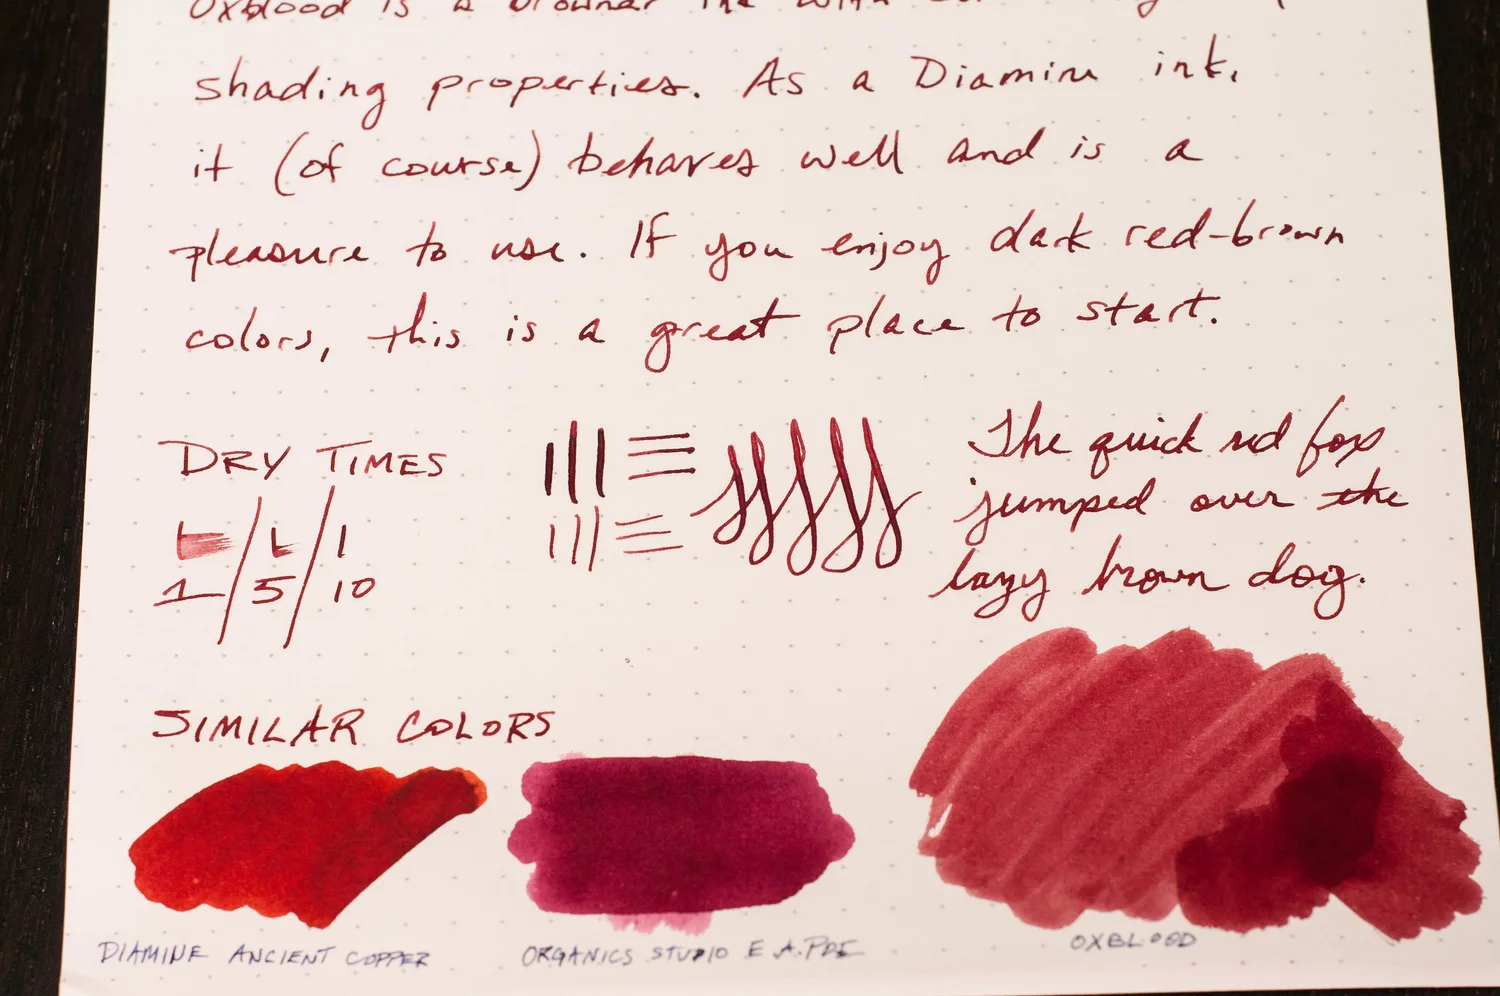 Oxblood is a
shading properties. As a Diamine ink,
it (of course) behaves well and is a
pleasure to use. If you enjoy dark red-brown
colors, this is a great place to start.
DRY TIMES
1 / 5 / 10
The quick red fox
jumped over the
lazy brown dog.
SIMILAR COLORS
DIAMINE ANCIENT COPPER
ORGANICS STUDIO E A. POE
OXBLOOD